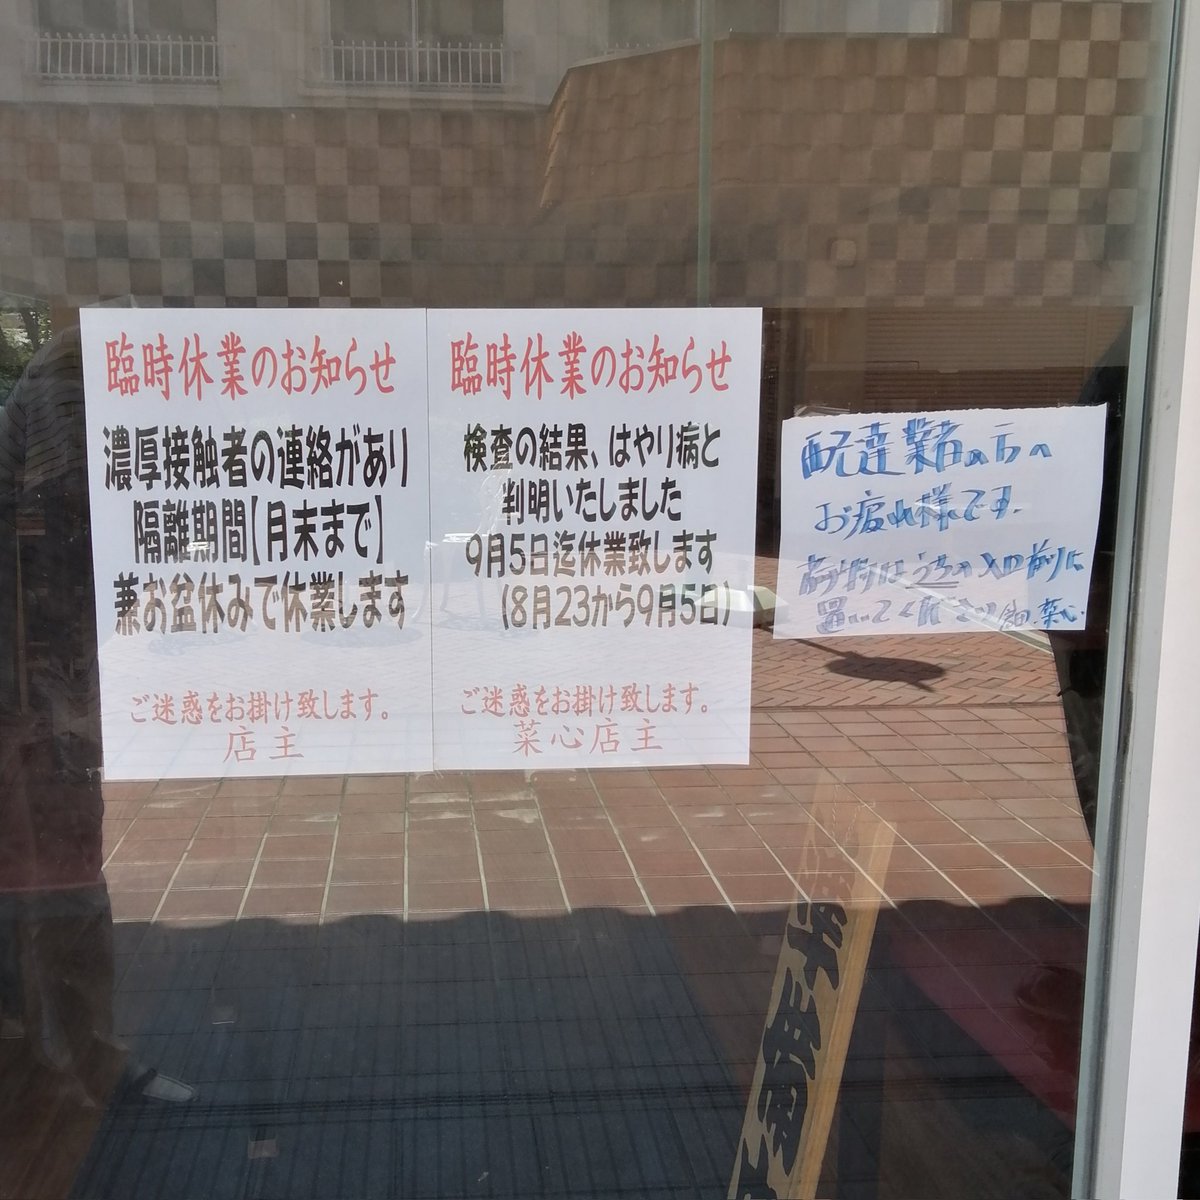 臨時休業のお知らせ
濃厚接触者の連絡があり
隔離期間【月末まで】
兼お盆休みで休業します
ご迷惑をお掛け致します。
店主
臨時休業のお知らせ
検査の結果、はやり病と
判明いたしました
9月5日迄休業致します
(8月23から9月5日)
ご迷惑をお掛け致します。
菜心店主
配達業者の方へ
お疲れ様です。
荷物はうちの入口前に
置いてください 菜心